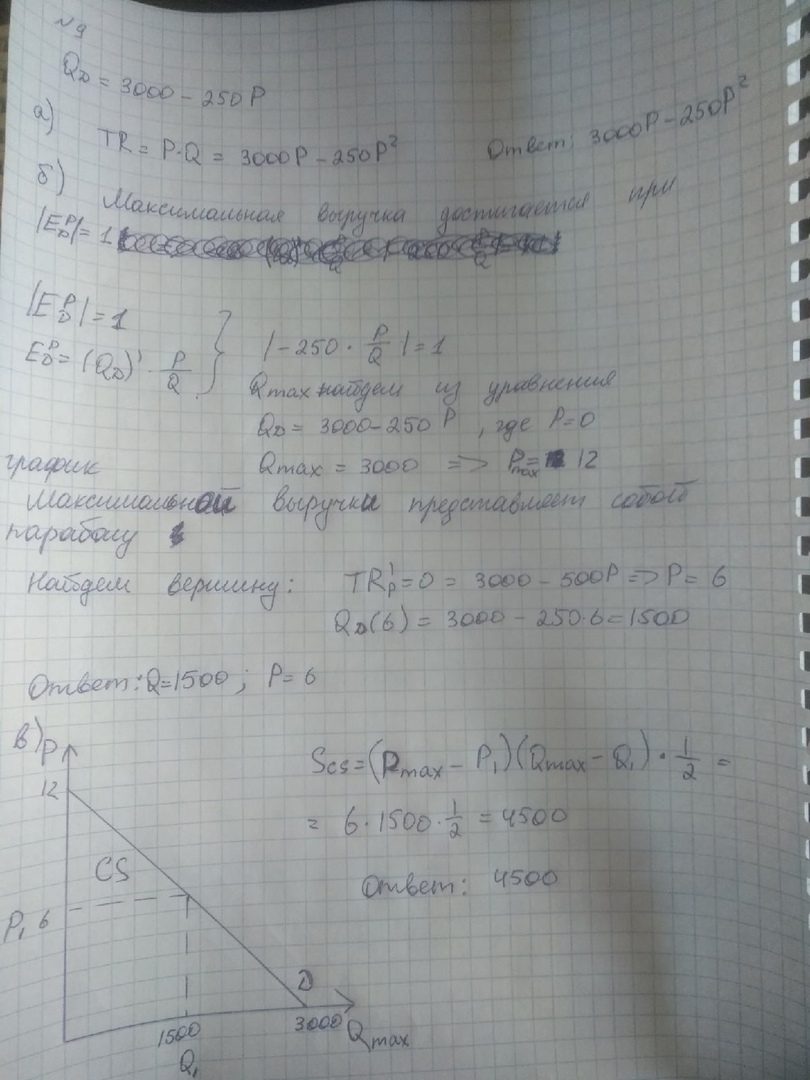 №9
Q_D = 3000 - 250P
а)
TR = P·Q = 3000P - 250P² Ответ: 3000P - 250P²
б)
Максимальная выручка достигается при
|E_D^P| = 1
|E_D^P| = 1
E_D^P = (Q_D)' · P/Q } |-250 · P/Q| = 1
Qmax найдем из уравнения
Q_D = 3000 - 250 P , где P=0
Qmax = 3000 => P_max = 12
график
Максимальной выручки представляет собой
параболу
Найдем вершину: TR'_P = 0 = 3000 - 500P => P = 6
Q_D(6) = 3000 - 250·6 = 1500
Ответ: Q=1500 ; P= 6
в) P
12
CS
P₁ 6
D
1500
Q₁
3000 Q_max
S_CS = (P_max - P₁)(Q_max - Q₁) · 1/2 =
= 6 · 1500 · 1/2 = 4500
Ответ: 4500